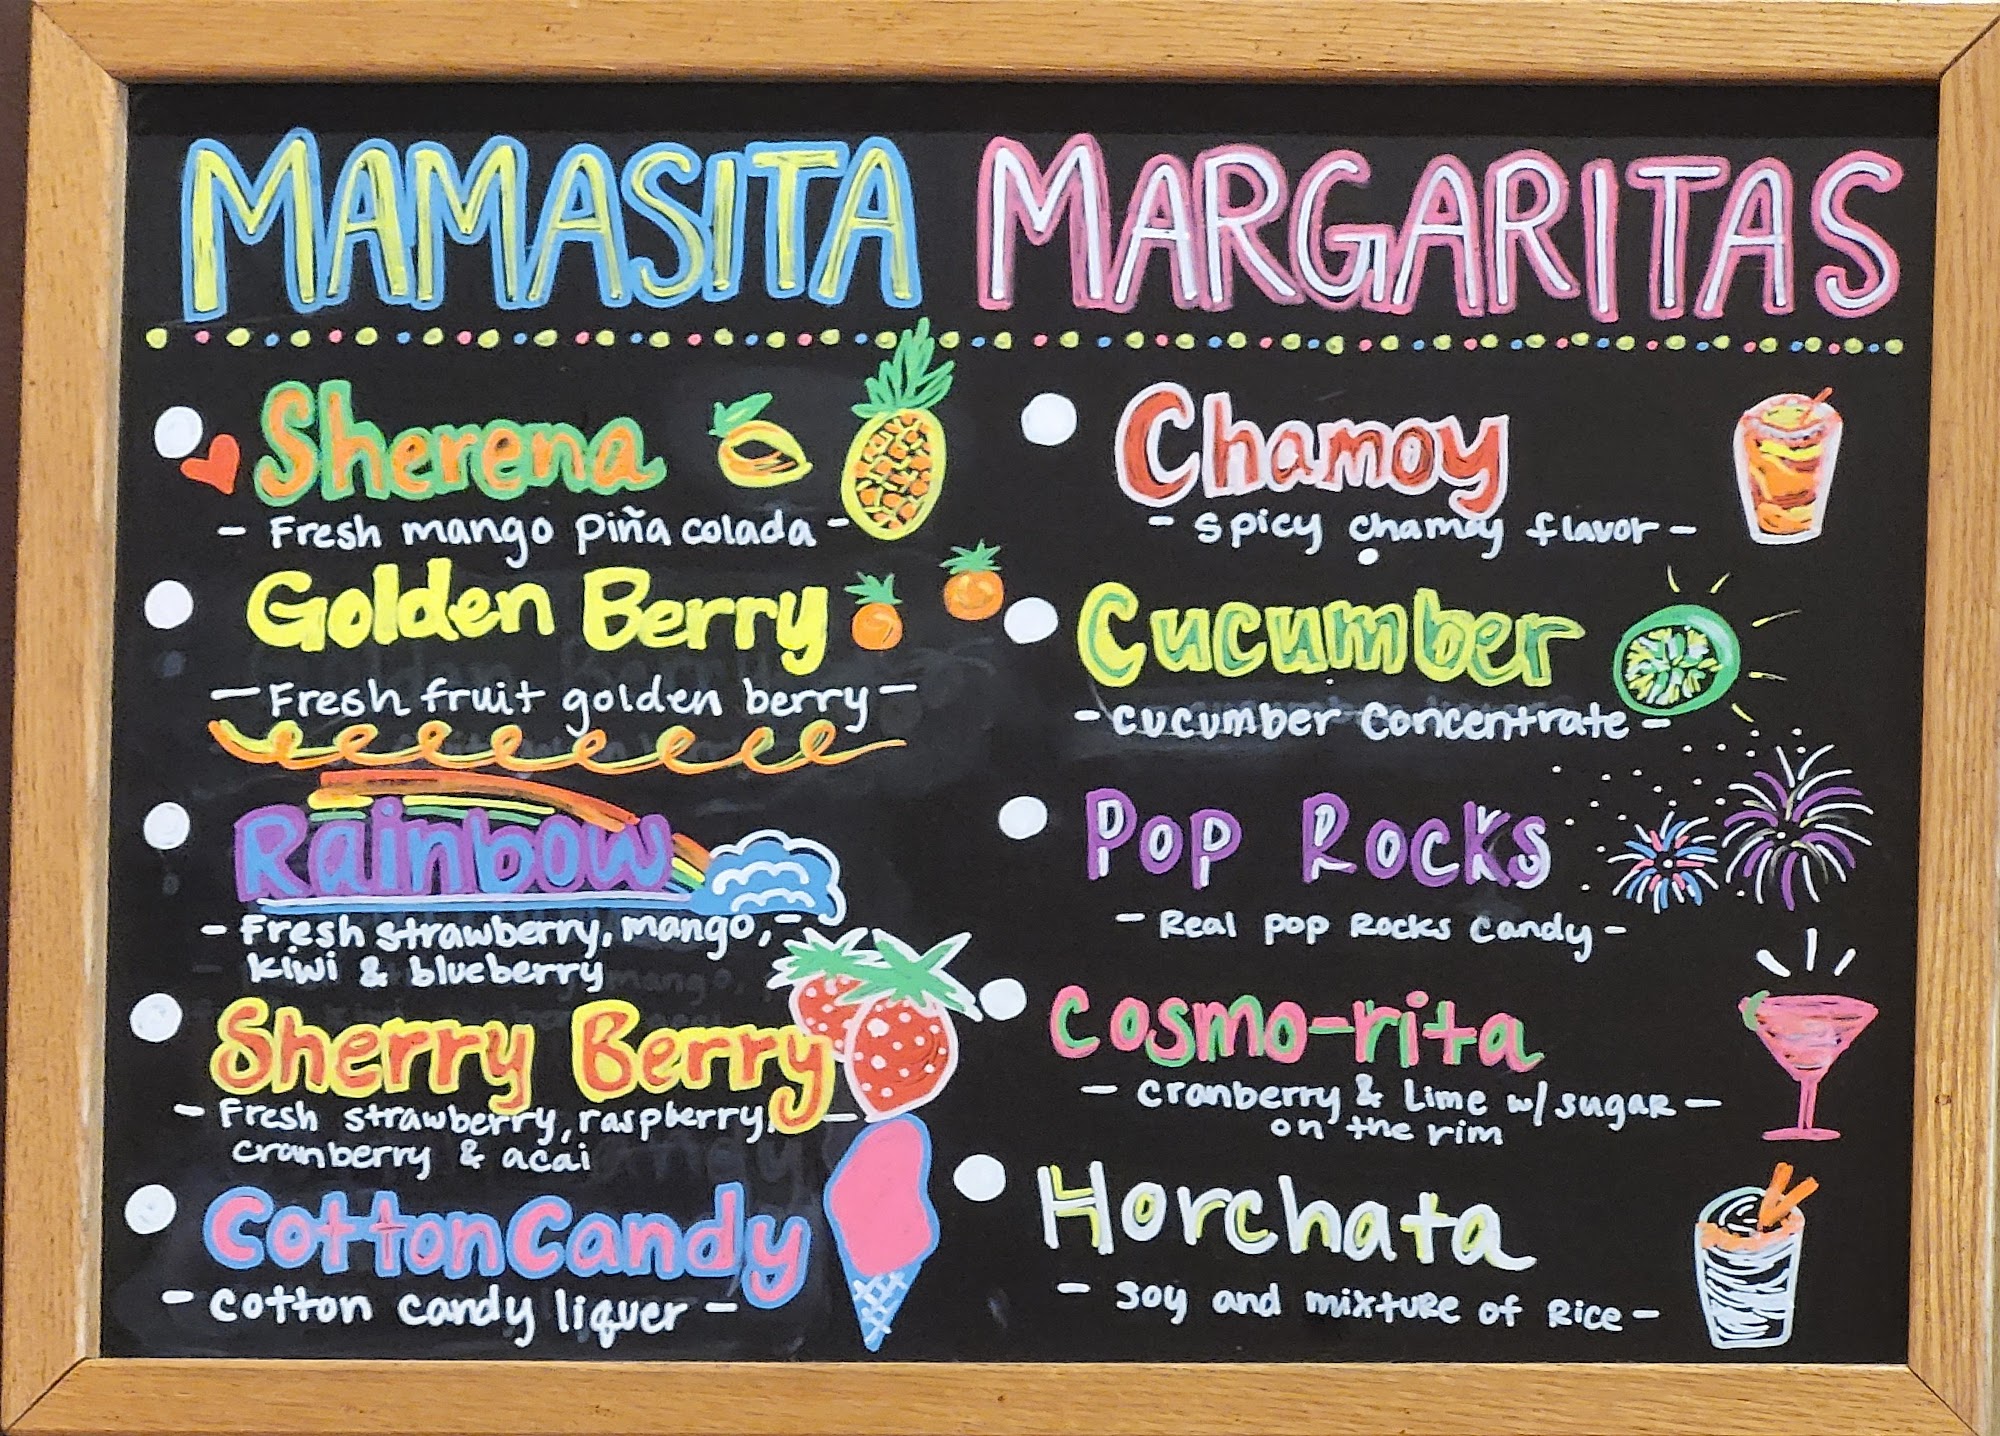 MAMASITA MARGARITAS
Sherena
- Fresh mango piña colada -
Golden Berry
- Fresh fruit golden berry -
Rainbow
- Fresh strawberry, mango, -
kiwi & blueberry
Sherry Berry
- Fresh strawberry, raspberry, -
cranberry & acai
Cotton Candy
- cotton candy liquer -
Chamoy
- spicy chamoy flavor -
Cucumber
- cucumber concentrate -
Pop Rocks
- Real pop Rocks candy -
Cosmo-rita
- cranberry & Lime w/ sugar -
on the rim
Horchata
- soy and mixture of Rice -